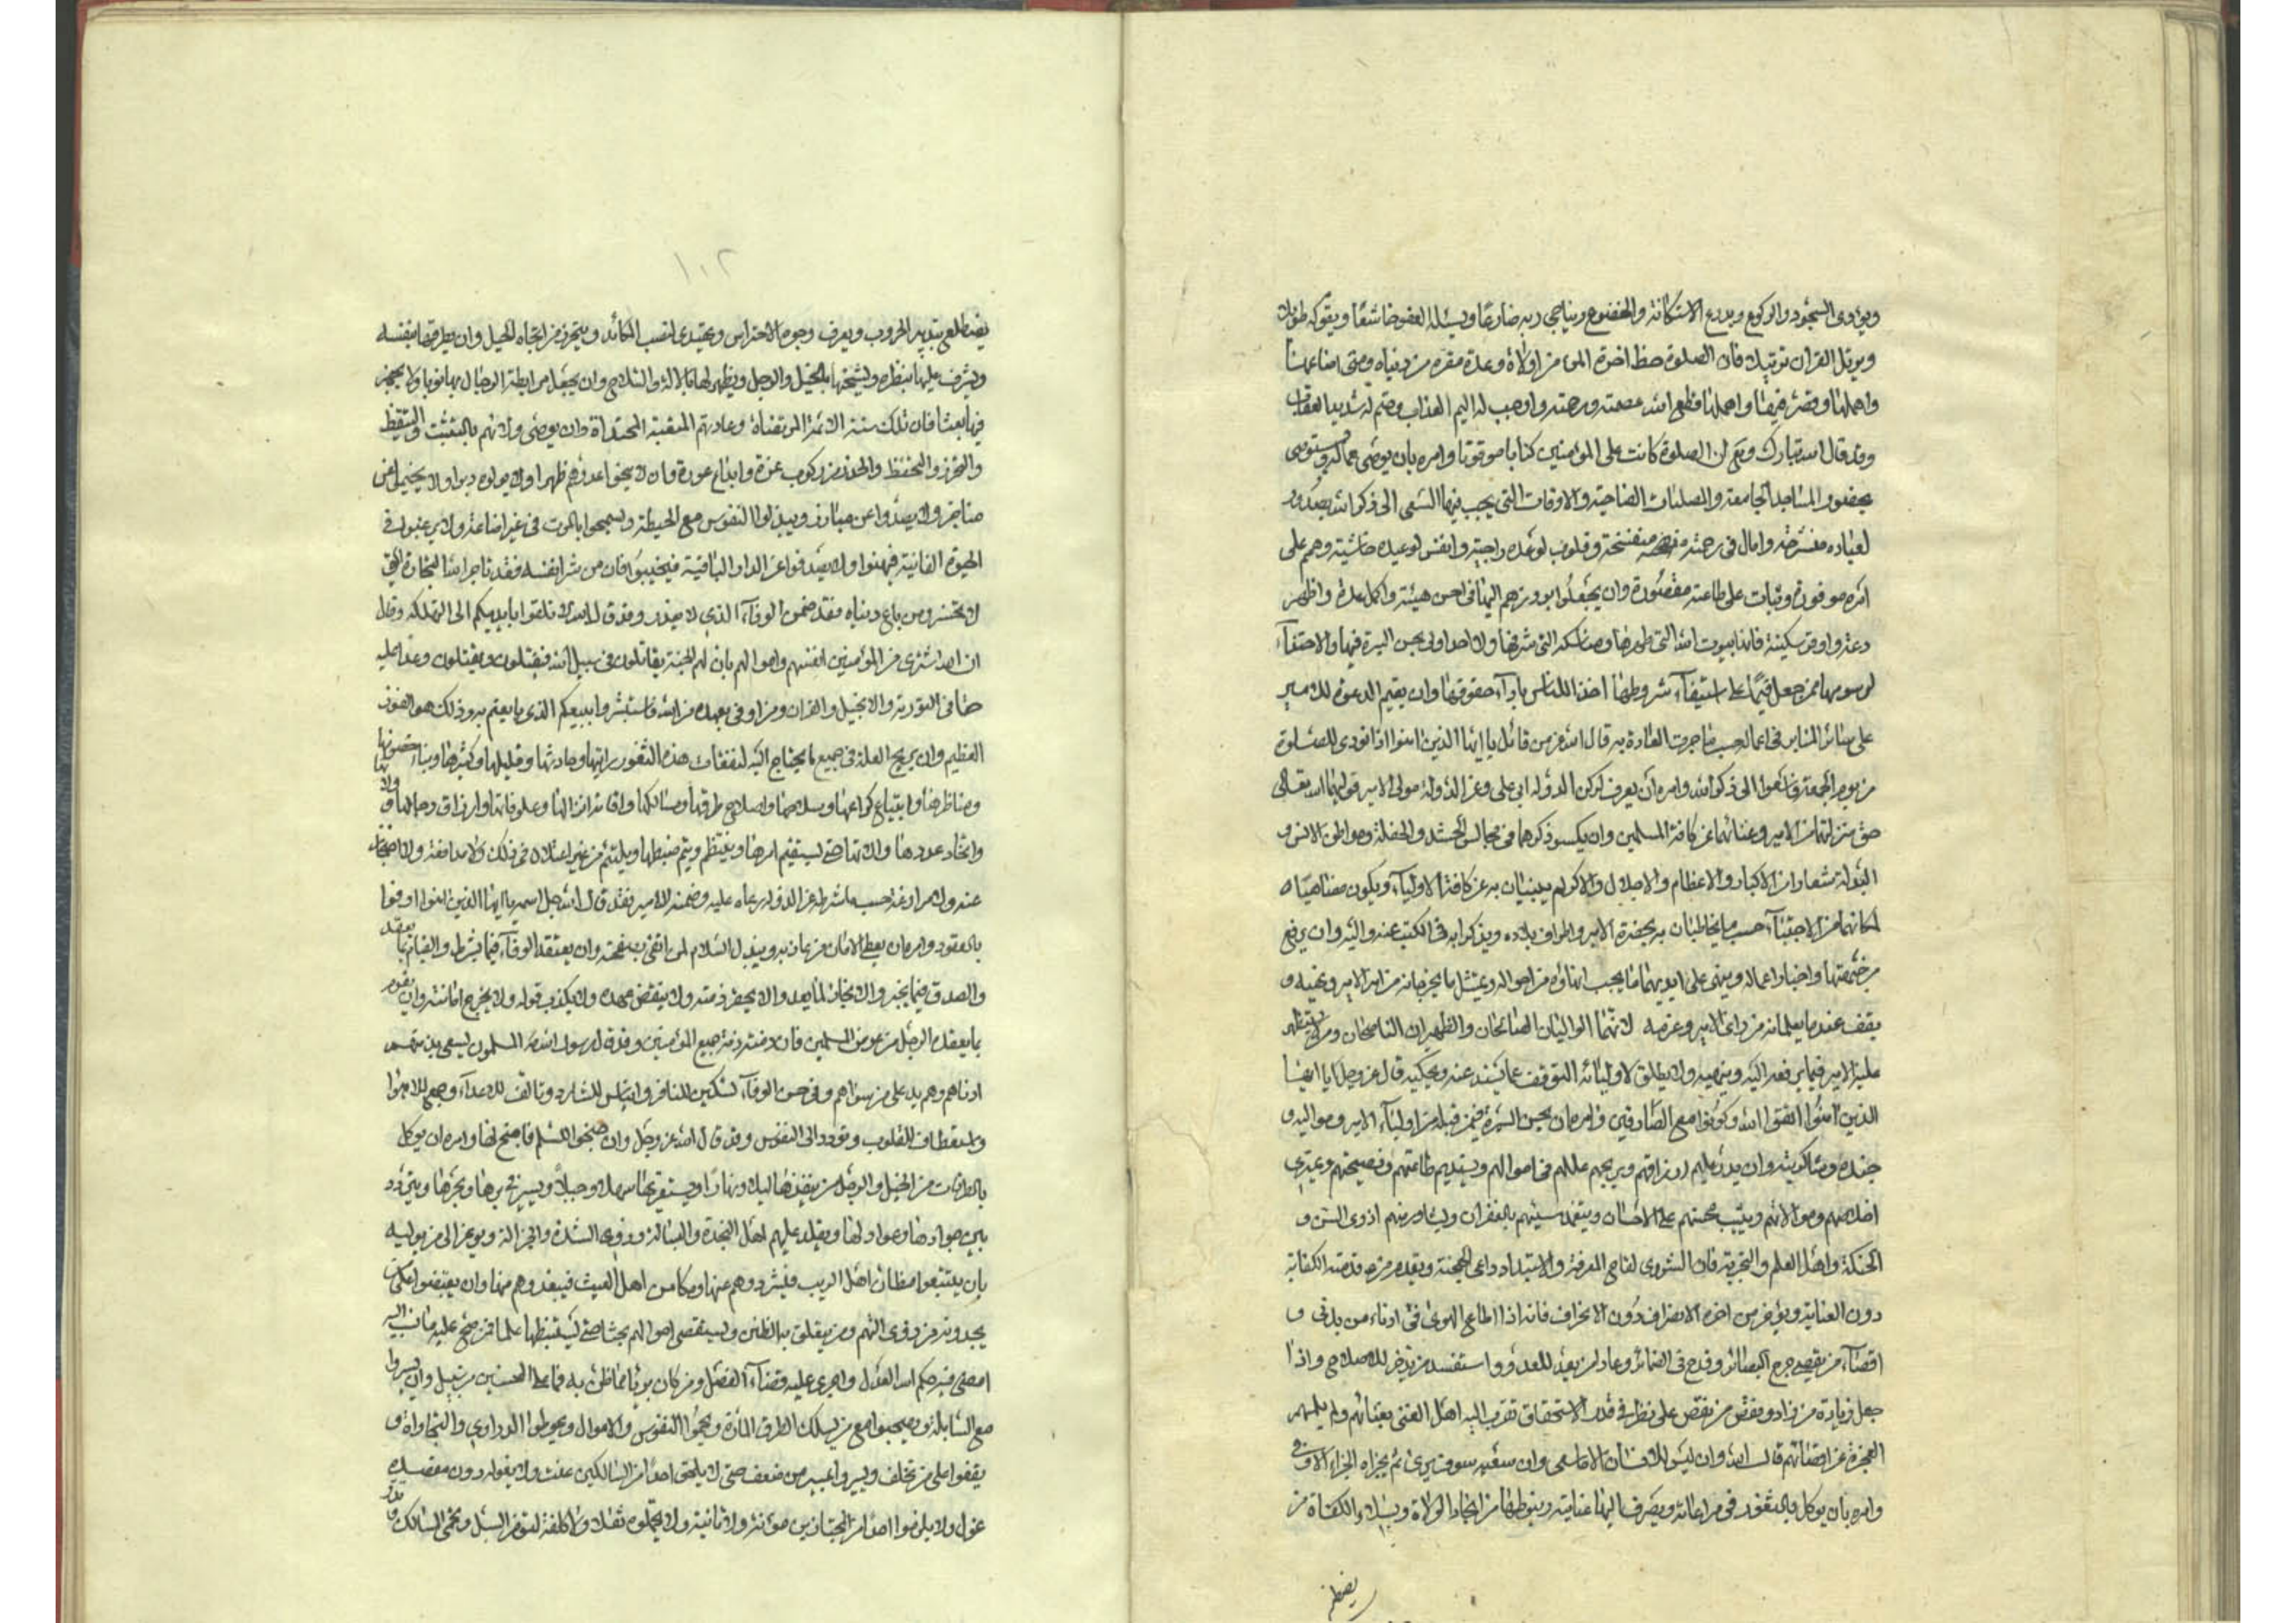 ويؤدى السجود والركوع ويدرع الاستكانة والخضوع ويناجى ربه ضارعا ويسئله العفو خاشعا ويقوله طولا
ويرتل القران ترتيلا فان الصلوة حظ اخرة المرء من اولاه وعدة مقره من دنياه ومتى اضاعها
واهملها قطع الله عصمته ورحمته واوجب له اليم العذاب وحتم له شديد العقاب
وقد قال الله تبارك وتع ان الصلوة كانت على المؤمنين كتابا موقوتا وامره بان
بحضور المساجد الجامعة والمصليات الضاحية والاوقات التى يجب فيها السعى الى ذكر الله بصدور
لعباده منشرحة وامال فى رحمته منفسحة وقلوب لوعده راجية وانفس لوعيده خاشية وهمم على
امره موفورة ونيات على طاعته مقصورة وان يجعلوا بروزهم اليها فى احسن هيئة واكمل عدة واظهر
دعة واوقر سكينة فانها بيوت الله التى طهرها ومناسكه التى شرفها ولا احد اولى بحسن السيرة فيها والاحتفاء
لرسومها ممن جعل قيما على استيفاء شروطها اخذا للناس باداء حقوقها وان يقيم الدعوة للامير
على سائر المنابر فى اعماله حسب ما جرت العادة به قال الله عز من قائل يا ايها الذين امنوا اذا نودى للصلوة
من يوم الجمعة فاسعوا الى ذكر الله وامره ان يعرف لركن الدولة ابى على وعز الدولة مولى الامير تولاهما الله تعالى
حق منزلتهما من الامير وغنائهما عن كافة المسلمين وان يكسو ذكرهما فى مجالس الحشد والحفلة ومواطن الانس و
البذلة شعارا من الاكبار والاعظام والاجلال والاكرام يبينان به عن كافة الاولياء ويكون مضاهيا
لمكانهما من الاجتباء حسب ما يخاطبان به بحضرة الامير واطراف بلاده ويذكرا به فى الكتب عنه واليه وان يرفع
اخبار اعماله وينهى على ايديهما ما يجب انهاؤه من احواله ويمتثل ما يخرجانه من امر الامير ونهيه و
يقف عند ما يعلمانه من راى الامير وعزمه لانهما الواليان الصالحان والظهيران الناصحان ومن يستظهر
عليه الامير فيما يرفعه اليه وينهيه ولا يطلق لاوليائه التوقف عما يسند عنه ويحكيه قال عز وجل يا ايها
الذين امنوا اتقوا الله وكونوا مع الصادقين وامره ان يحسن السيرة فيمن قبله من اولياء الامير ومواليه و
جنده وشاكريته وان يدر عليهم ارزاقهم ويريح عللهم فى اموالهم ويستديم طاعتهم ونصيحتهم ويمترى
اخلاصهم وموالاتهم ويثيب محسنهم على الاحسان ويتغمد مسيئهم بالغفران ويشاور منهم ذوى السن و
الحنكة واهل العلم والتجربة فان الشورى لقاح المعرفة والاستبداد داعى الهجنة ويقدم من قدمته الكفاية
دون العناية ويؤخر من اخره الانصراف دون الانحراف فانه اذا اطاع الهوى فى ادناء من يدنى و
اقصاء من يقصى جرح البصائر وقدح فى الضمائر وعاد لمن يعد للعدو واستفسد من يذخر للاصلاح واذا
جعل زيادة من زاد ونقص من نقص على نظر فى قدر الاستحقاق تقرب اليه اهل الغنى بغنائهم ولم يلمه
العجزة عن اقصائهم قال الله وان ليس للانسان الا ما سعى وان سعيه سوف يرى ثم يجزاه الجزاء الاوفى
وامره بان يوكل بالثغور فى مراعاته ويصرف اليها عنايته وينوطها من انجاد الولاة وبسلاء الكفاة من
يضطلع
١٠٢
يضطلع بتدبير الحروب ويعرف وجوه الاحتراس ويهتدى لنصب المكائد ويتحرز من اتجاه الحيل وان يطرقها بنفسه
ويشرف عليها بنظره ويشحنها بالخيل والرجل ويظهر لها بالالة والسلاح وان يجعل مرابطة الرجال بها نوبا ولا يجمر
فيها بعثا فان تلك سنة الائمة المرتضاة وعادتهم المتقبلة المحتذاة وان يوصى ولاتهم بالتثبت والتيقظ
والتحرز والتحفظ والحذر من ركوب غرة واتباع عورة وان لا يمنحوا عدوهم ظهرا ولا يولوه دبرا ولا يخيموا عن
مناجز ولا يصدوا عن مبارز ويبذلوا النفوس مع الحيطة ويسمحوا بالموت فى غير اضاعة ولا يرغبوا فى
الحيوة الفانية فيهنوا ولا يصدفوا عن الدار الباقية فيخيبوا فان من شرى نفسه فقد تاجر الله التجارة التى
لا تخسر ومن باع دنياه فقد ضمن الوفاء الذى لا يغدر وقد قال الله لا تلقوا بايديكم الى التهلكة وقال
ان الله اشترى من المؤمنين انفسهم واموالهم بان لهم الجنة يقاتلون فى سبيل الله فيقتلون ويقتلون وعدا عليه
حقا فى التورية والانجيل والقران ومن اوفى بعهده من الله فاستبشروا ببيعكم الذى بايعتم به وذلك هو الفوز
العظيم وان يريح العلة فى جميع ما يحتاج اليه لنفقات هذه الثغور راتبها وحادثها وقليلها وكثيرها وبناء حصونها
ومناظرها وابتياع كراعها وسلاحها واصلاح طرقها ومسالكها واقامة انزالها وعلوفاتها وارزاق رجالها وولاتها و
اتخاذ عددها والاتها حتى يستقيم امرها وينتظم ويتم ضبطها ويلتئم من غير اعتلال فى ذلك ولا مدافعة ولا
عنه ولا مراوغة حسب ما شرطه عز الدولة رعاه عليه وضمنه للامير فقد قال الله جل اسمه يا ايها الذين امنوا اوفوا
بالعقود وامره ان يعطى الامان من عاذ به ويبذل السلام لمن اتقى وان يعتقد الوفاء فيما يشرط والقيام بما يعقد
والصدق فيما يخبر والانجاز لما يعد والا يخفر ذمته ولا ينقض عهده ولا يكذب قوله ولا يخرج امانته وان يقوم
بما يعقده الرجل من عرض المسلمين فان ذمته ذمة جميع المؤمنين وقد قال رسول الله ص المسلمون يسعى بذمتهم
ادناهم وهم يد على من سواهم وفى حسن الوفاء تسكين للنافر وايناس للشارد وتالف للاعداء وجمع للاهواء
واستعطاف للقلوب وتودد الى النفوس وقد قال الله عز وجل وان جنحوا للسلم فاجنح لها وامره ان يوكل
بالطرقات من الخيل والرجل من ينفذها ليلا ونهارا ويستقريها سهلا وجبلا ويسيح فى برها وبحرها ويتردد
بين جوادها وعوادلها ويقلد عليهم اهل النجدة والبسالة وذوى الشدة والجزالة ويوعز الى من يوليه
بان يتتبعوا مظان اهل الريب فيشردوهم عنها ومكامن اهل العيث فيبعدوهم منها وان يقتفوا
يجدونه من ذوى التهم ومن يتعلق به الظنن ويستقصى احوالهم بحثا حتى يستنبطها علما فمن صح عليه ما نسب اليه
امضى فيه حكم الله العدل واجرى عليه قضاء الفصل ومن كان بريئا مما ظن به فما على المحسنين من سبيل وان يسيروا
مع السابلة ويصحبوا مع من يسلك الطرق المارة ويحموا النفوس والاموال ويحوطوا الدوارى والتجارات و
يقفوا على من تخلف ويسيروا بسير من ضعف حتى لا يلحق احدا من السالكين عنت ولا يغوله دون مقصده
غول ولا يلزموا احدا من المجتازين مؤنة ولا ثانية ولا يحملوه ثقلا ولا كلفة لتؤمن السبل وتحمى المسالك و